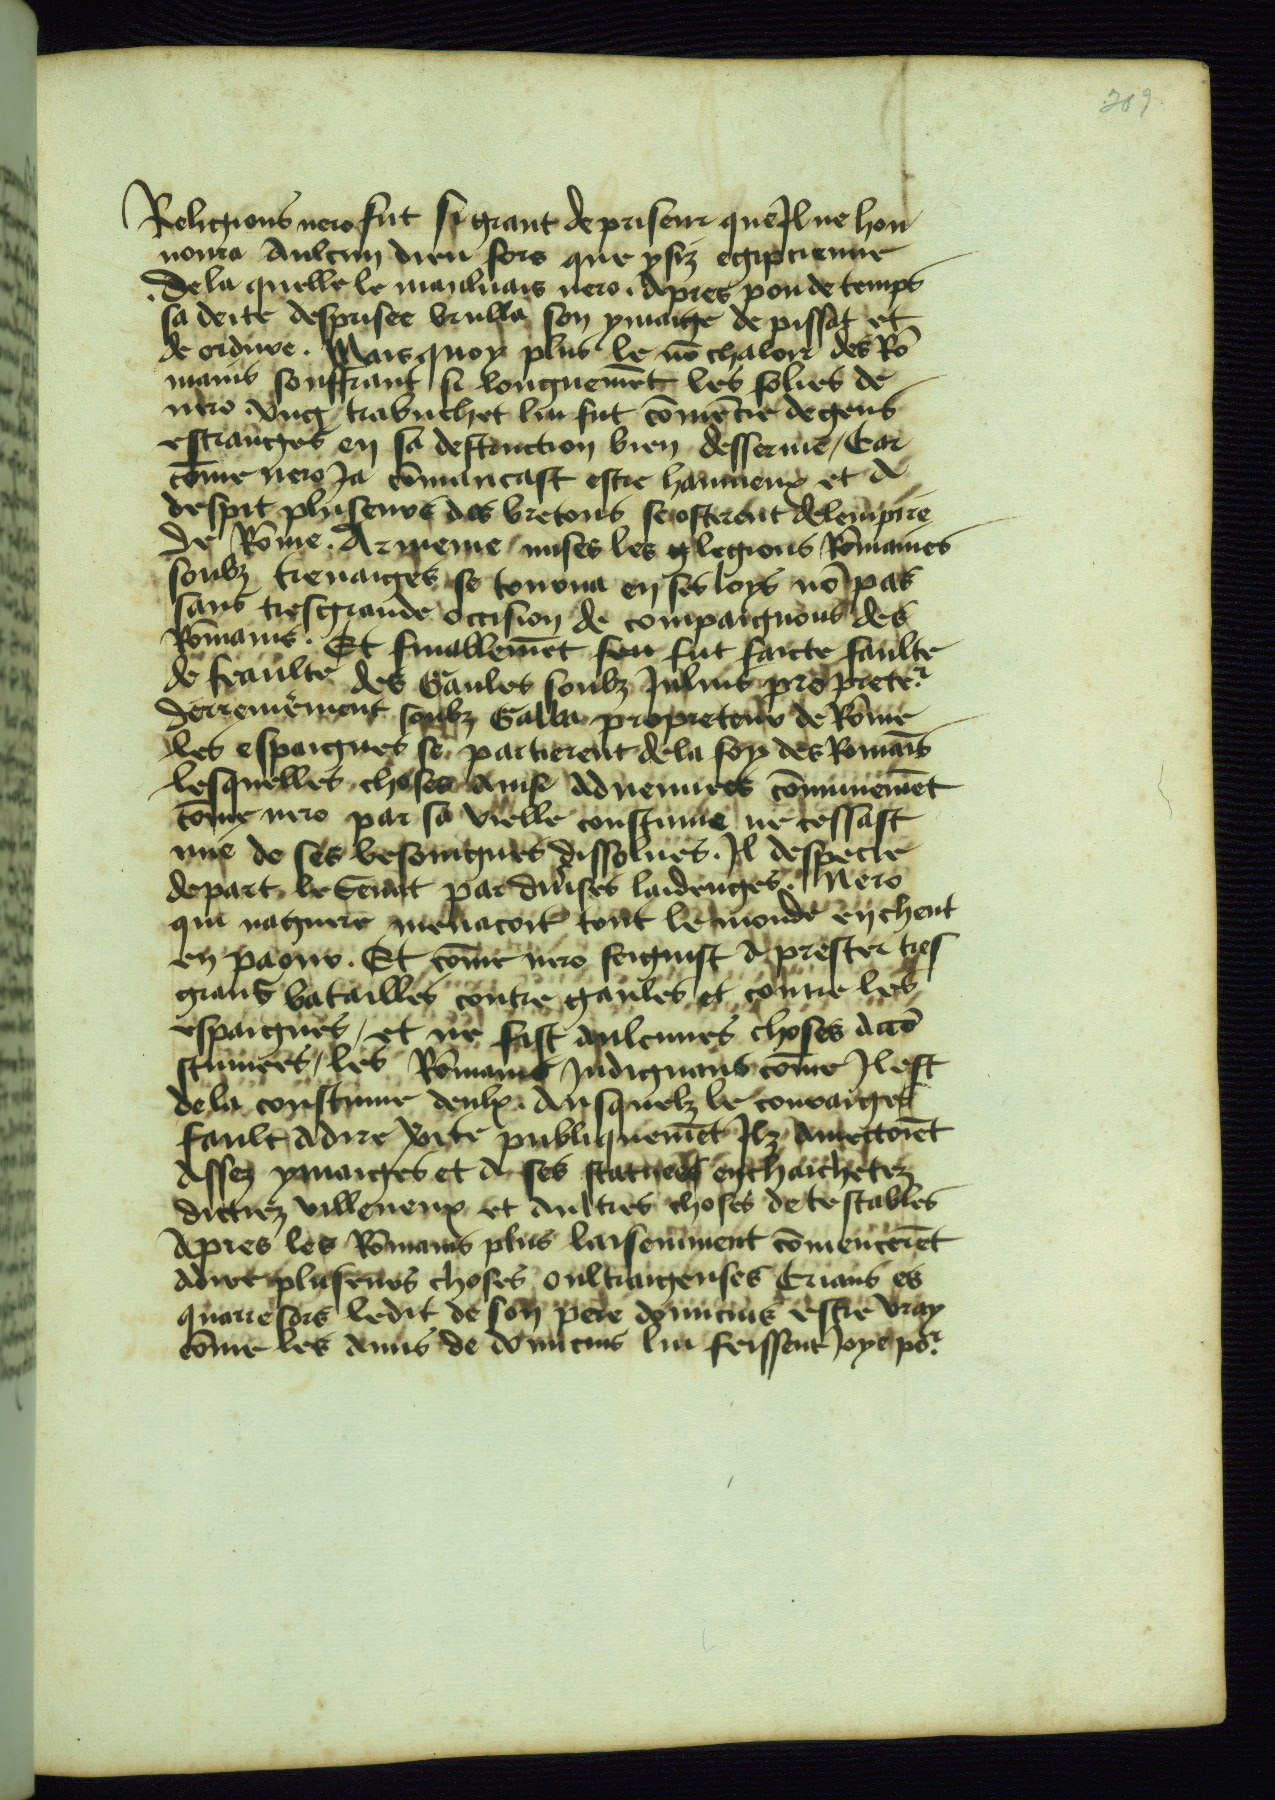 209
Religions nero fut si grant de priseur que Il ne hon
noura Aulcun dieu fors que ysiz egipcienne
De la quelle le mauluais nero. Apres pou de temps
sa deite desprisee brulla son ymaige de pissat et
de ordure. Mais quoy plus le nō chaloir des Rō
mains souffrant si longuemēt les folies de
nero. Vng trabuchet lui fut cōmēcie de gens
estranges en sa destruction bien desseruie / Car
cōme nero Ja cōmancast estre hayneux et A
despit pluseurs des bretons se osterent de lempire
de Rōme. Armenie mises les legions Rōmaines
soubz treuaiges se tourna en ses loys nō pas
sans tresgrande occision de compaignons des
Rōmains. Et finallemēt feu fut faicte faulte
de feaulte des Gaules soubz Julius pro preter
Derrenierement soubz Galba propreteur de Rōme
les espaignes se partirent de la foy des Romaīs
lesquelles choses Ainsi Aduenues cōmunemēt
cōme nero par sa vielle coustume ne cessast
mie de ses besoingnes dissolues. Il despecie
depart le Senat par diūses laidenges. Nero
qui naguere menacoit tout le monde enchent
en paour. Et cōme nero feignist A prester tres
grans batailles contre gaules et contre les
espaignes / et ne fist aulcunes choses Acco
stumees / les Rōmains Indignans cōme Il est
de la coustume deulx. Ausquelz le couraige
fault A dire vite publiquemēt Ilz Amectoiēt
Assez ymaiges et A ses statues enchaichetez
dictiez villeneux et Aultres choses detestables
Apres les Rōmains plus laisement cōmencerēt
A dire pluseurs choses oultraigeuses Crians es
quarrefors ledit de son pere domicius estre vray
cōme les Amis de domicius lui feissent Joye por